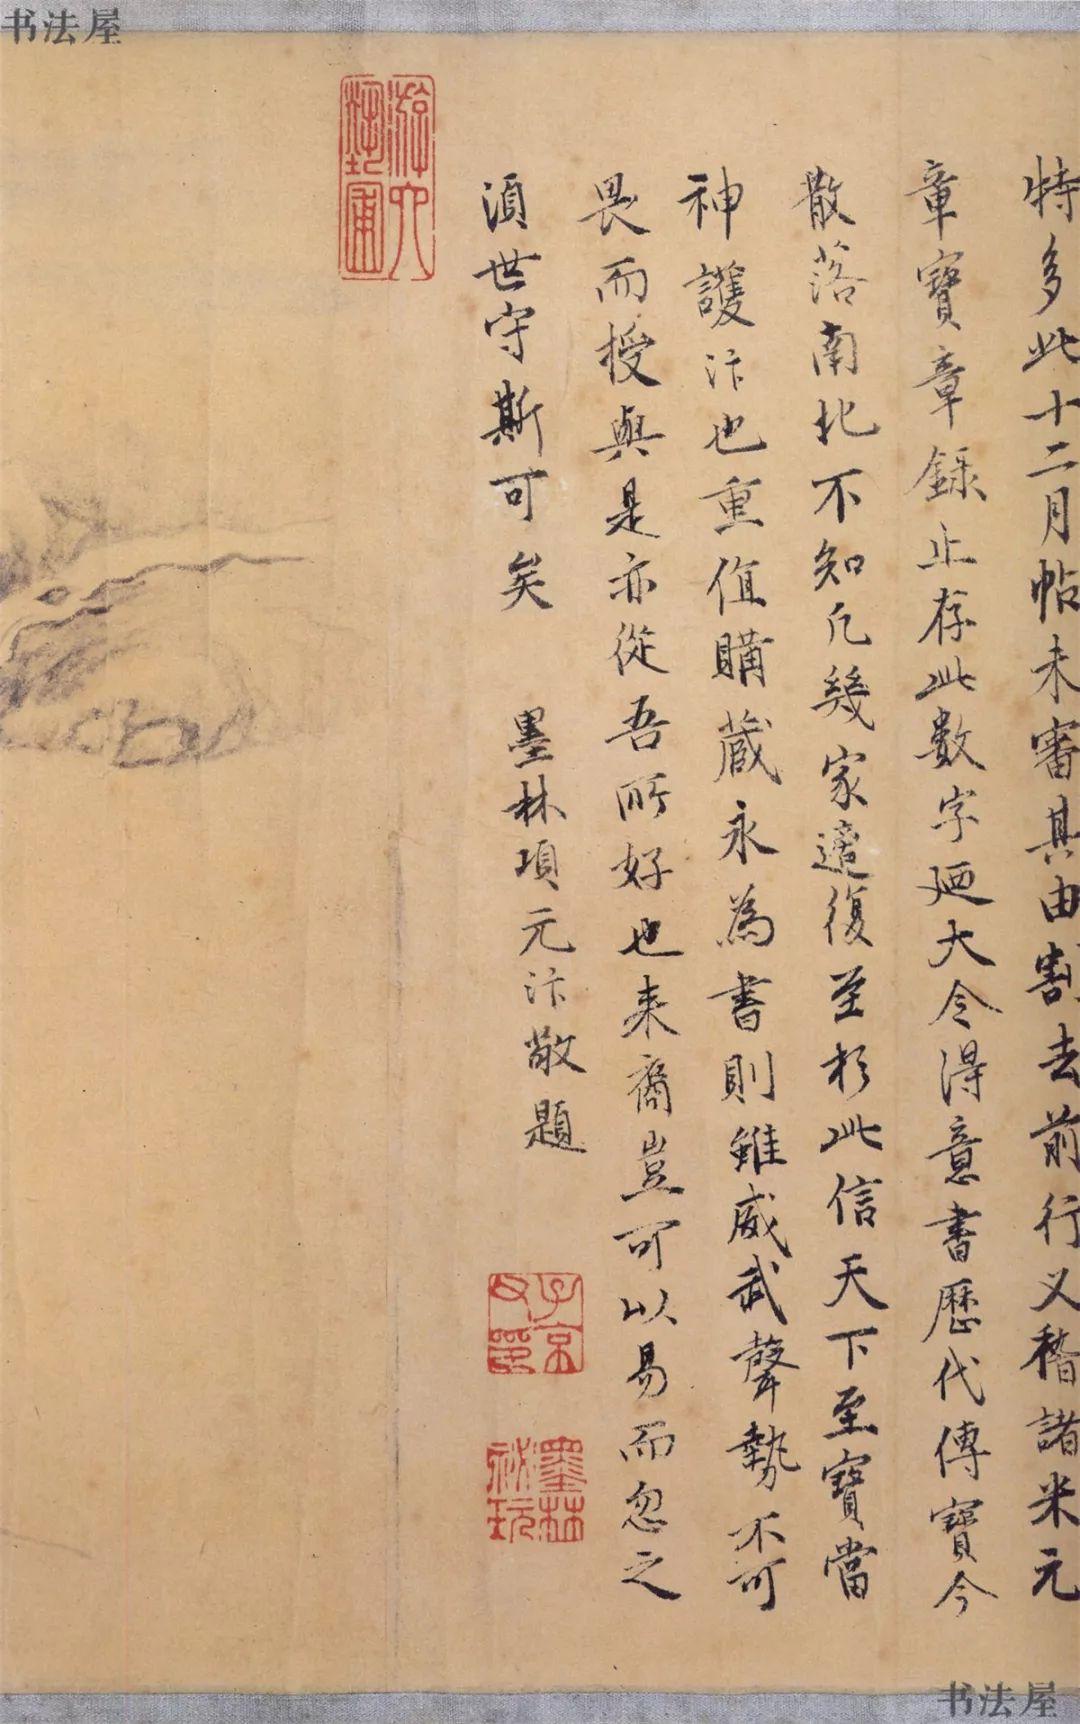 书法屋
特多此十二月帖未審其由割去前行又稽諸米元
章寶章録止存此數字廼大令得意書歷代傳寶今
散落南北不知凢幾家適復至於此信天下至寶當
神護汴也重值購藏永為書則雖威武聲勢不可
畏而授與是亦從吾所好也来裔豈可以易而忽之
湏世守斯可矣 墨林項元汴敬題
游六藝圃
子京父印
墨林祕玩
书法屋